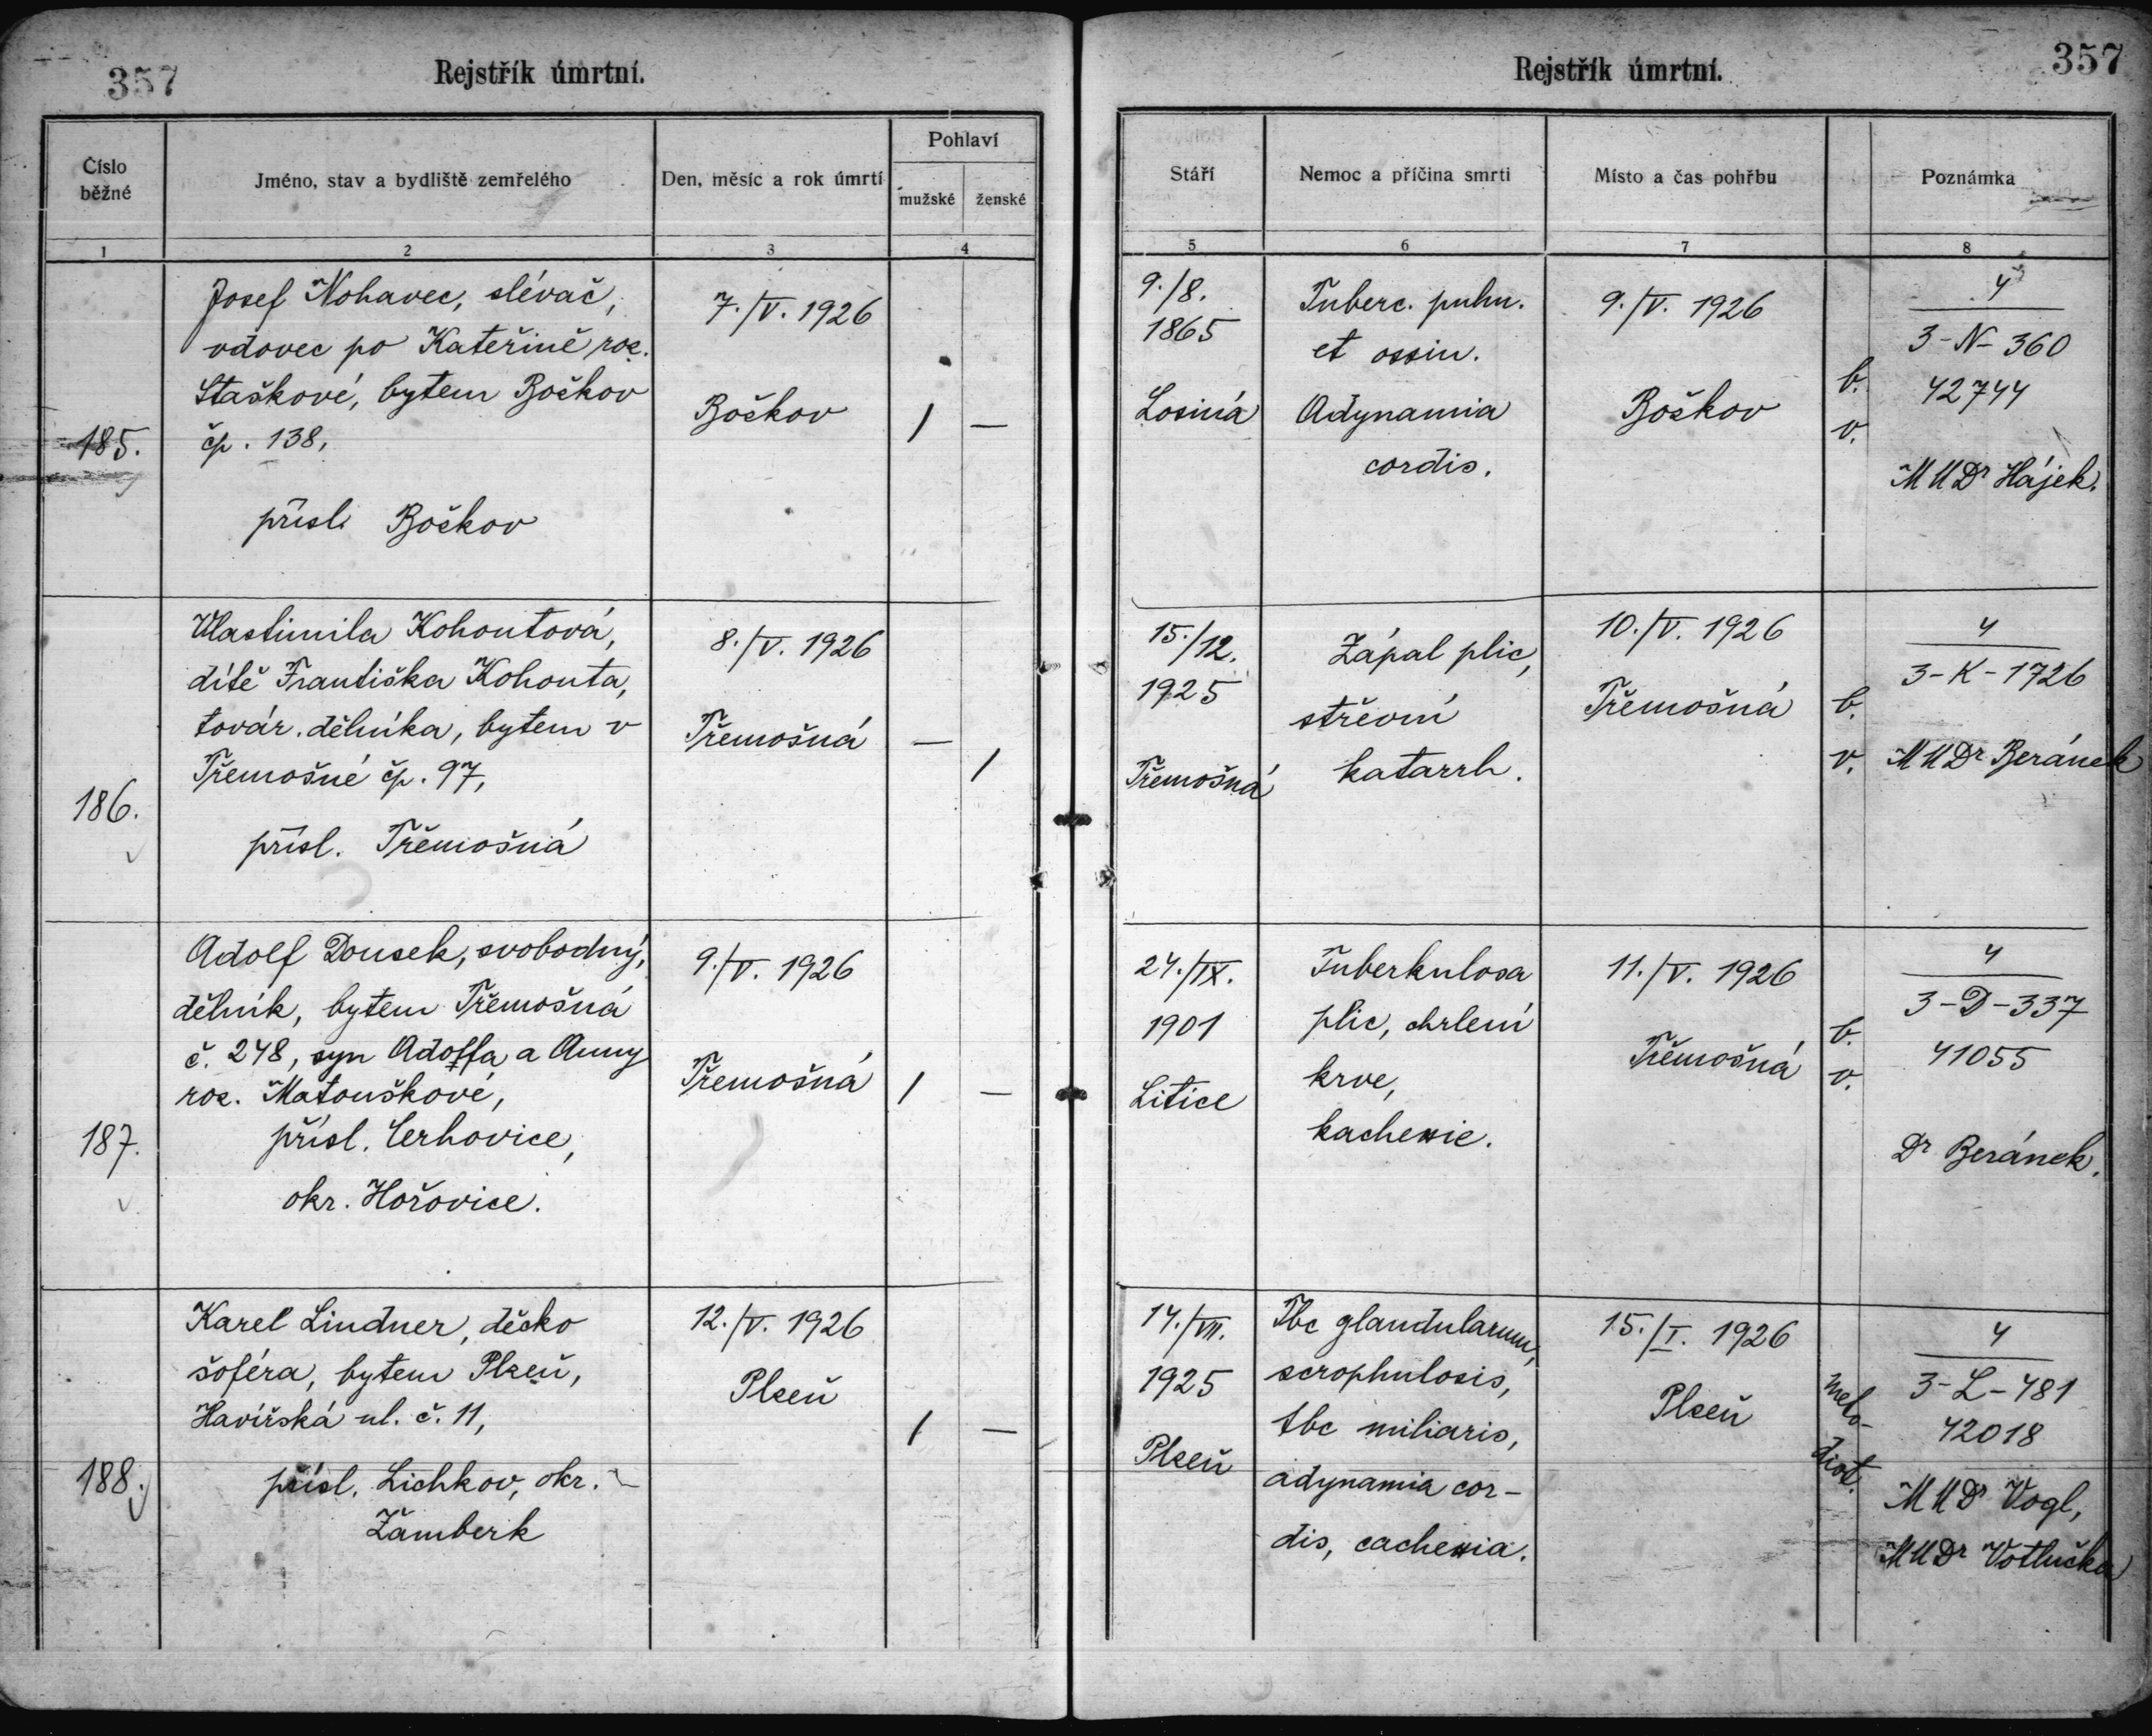 357
Rejstřík úmrtní.
Číslo běžné
Jméno, stav a bydliště zemřelého
Den, měsíc a rok úmrtí
Pohlaví
mužské
ženské
1
2
3
4
185.
Josef Nohavec, slévač,
vdovec po Kateřině roz.
Staškové, bytem Božkov
čp. 138,
přísl. Božkov
7./V. 1926
Božkov
/
—
186.
Vlastimila Kohoutová,
dítě Františka Kohouta,
továr. dělníka, bytem v
Třemošné čp. 97,
přísl. Třemošná
8./V. 1926
Třemošná
—
/
187.
Adolf Dousek, svobodný,
dělník, bytem Třemošná
č. 248, syn Adolfa a Anny
roz. Matouškové,
přísl. Cerhovice,
okr. Hořovice.
9./V. 1926
Třemošná
/
—
188.
Karel Lindner, děcko
šoféra, bytem Plzeň,
Havířská ul. č. 11,
přísl. Lichkov, okr.
Žamberk
12./V. 1926
Plzeň
/
—
Rejstřík úmrtní.
357
Stáří
Nemoc a příčina smrti
Místo a čas pohřbu
Poznámka
5
6
7
8
9./8.
1865
Losiná
Tuberc. pulm.
et ossiu.
Adynamia
cordis.
9./V. 1926
Božkov
b.
v.
4
3-N-360
42744
MUDr Hájek.
15./12.
1925
Třemošná
Zápal plic,
střevní
katarrh.
10./V. 1926
Třemošná
b.
v.
4
3-K-1726
MUDr Beránek
24./IX.
1901
Litice
Tuberkulosa
plic, chrlení
krve,
kachexie.
11./V. 1926
Třemošná
b.
v.
4
3-D-337
41055
Dr Beránek.
14./VII.
1925
Plzeň
Tbc glandularum,
scrophulosis,
tbc miliaris,
adynamia cor-
dis, cachexia.
15./I. 1926
Plzeň
meto-
dist.
4
3-L-481
42018
MUDr Vogl,
MUDr Votlučka